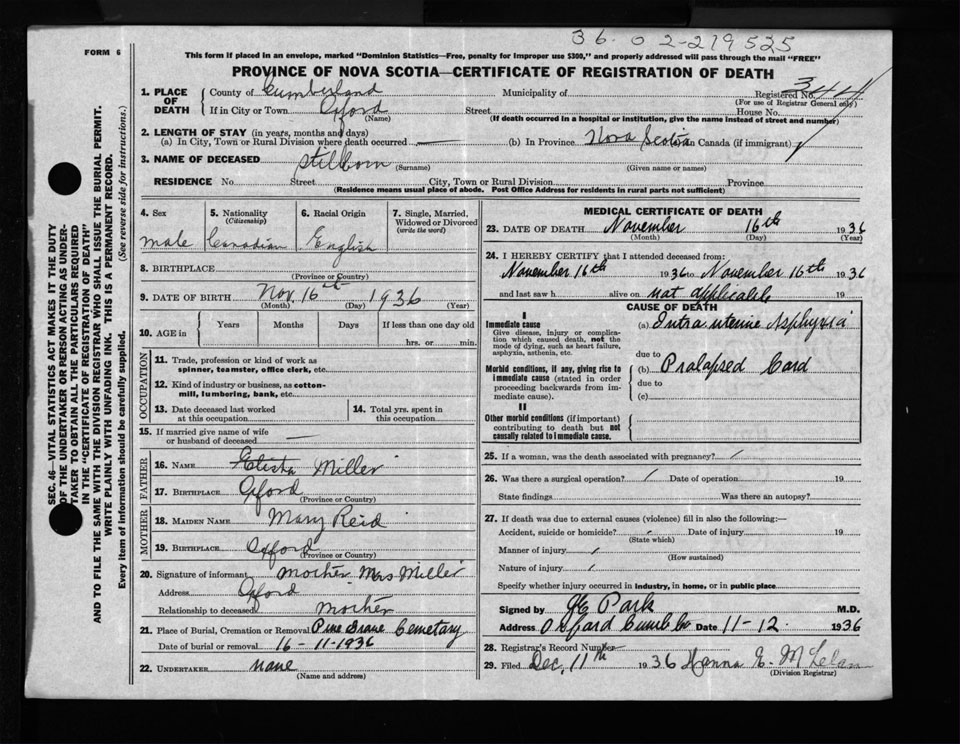 36-02-219525
FORM 6
This form if placed in an envelope, marked "Dominion Statistics—Free, penalty for improper use $300," and properly addressed will pass through the mail "FREE"
PROVINCE OF NOVA SCOTIA—CERTIFICATE OF REGISTRATION OF DEATH
1. PLACE OF DEATH
County of Cumberland Municipality of Registered No. 344
(For use of Registrar General only)
If in City or Town Oxford Street House No.
(Name) (If death occurred in a hospital or institution, give the name instead of street and number)
2. LENGTH OF STAY (in years, months and days)
(a) In City, Town or Rural Division where death occurred — (b) In Province Nova Scotia in Canada (if immigrant)
3. NAME OF DECEASED Stillborn
(Surname) (Given name or names)
RESIDENCE No. Street City, Town or Rural Division Province
(Residence means usual place of abode. Post Office Address for residents in rural parts not sufficient)
4. Sex male
5. Nationality (Citizenship) Canadian
6. Racial Origin English
7. Single, Married, Widowed or Divorced (write the word)
8. BIRTHPLACE
(Province or Country)
9. DATE OF BIRTH Nov. 16th 1936
(Month) (Day) (Year)
10. AGE in Years Months Days If less than one day old
hrs. or min.
OCCUPATION
11. Trade, profession or kind of work as spinner, teamster, office clerk, etc.
12. Kind of industry or business, as cotton-mill, lumbering, bank, etc.
13. Date deceased last worked at this occupation
14. Total yrs. spent in this occupation
15. If married give name of wife or husband of deceased —
FATHER
16. NAME Elisha Miller
17. BIRTHPLACE Oxford
(Province or Country)
MOTHER
18. MAIDEN NAME Mary Reid
19. BIRTHPLACE Oxford
(Province or Country)
20. Signature of informant Mother Mrs Miller
Address Oxford
Relationship to deceased Mother
21. Place of Burial, Cremation or Removal Pine Grove Cemetary
Date of burial or removal 16-11-1936
22. UNDERTAKER none
(Name and address)
MEDICAL CERTIFICATE OF DEATH
23. DATE OF DEATH November 16th 1936
(Month) (Day) (Year)
24. I HEREBY CERTIFY that I attended deceased from:
November 16th 1936 to November 16th 1936
and last saw h alive on not applicable 19
CAUSE OF DEATH
I
Immediate cause
Give disease, injury or complication which caused death, not the mode of dying, such as heart failure, asphyxia, asthenia, etc.
(a) Intra uterine Asphyxia
due to
Morbid conditions, if any, giving rise to immediate cause (stated in order proceeding backwards from immediate cause).
(b) Prolapsed Cord
due to
(c)
II
Other morbid conditions (if important) contributing to death but not causally related to immediate cause.
25. If a woman, was the death associated with pregnancy? /
26. Was there a surgical operation? / Date of operation 19
State findings Was there an autopsy?
27. If death was due to external causes (violence) fill in also the following:—
Accident, suicide or homicide? / Date of injury 19
(State which)
Manner of injury /
(How sustained)
Nature of injury /
Specify whether injury occurred in industry, in home, or in public place
Signed by Park M.D.
Address Oxford Cumb Co Date 11-12. 1936
28. Registrar's Record Number
29. Filed Dec, 11th 1936 Hanna E. McLelan
(Division Registrar)
SEC. 46—VITAL STATISTICS ACT MAKES IT THE DUTY
OF THE UNDERTAKER OR PERSON ACTING AS UNDER-
TAKER TO OBTAIN ALL THE PARTICULARS REQUIRED
IN THE "CERTIFICATE OF REGISTRATION OF DEATH"
AND TO FILE THE SAME WITH THE DIVISION REGISTRAR WHO SHALL ISSUE THE BURIAL PERMIT.
WRITE PLAINLY WITH UNFADING INK. THIS IS A PERMANENT RECORD.
Every item of information should be carefully supplied. (See reverse side for instructions.)